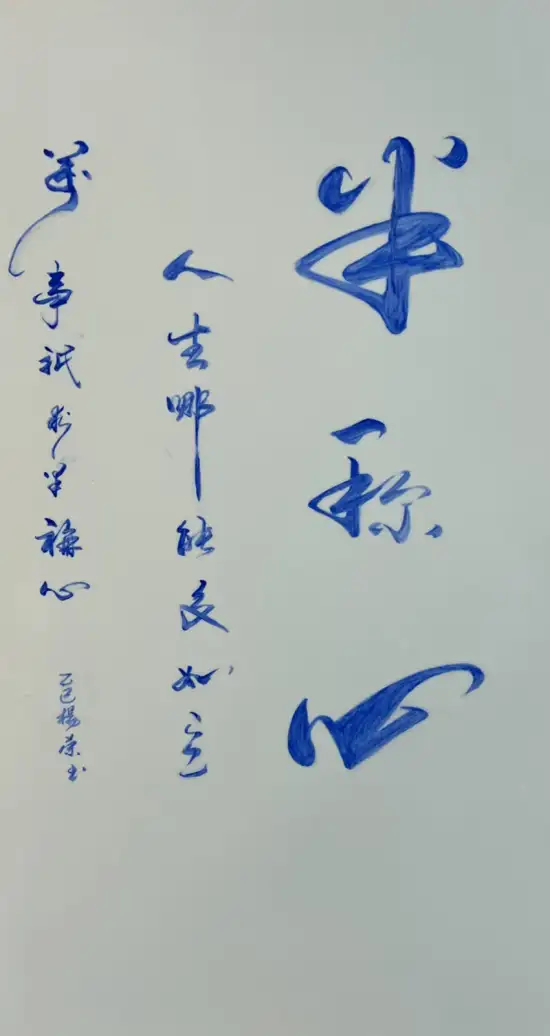 半称心
人生哪能多如意
萬事祇求半稱心
乙巳楊荣书